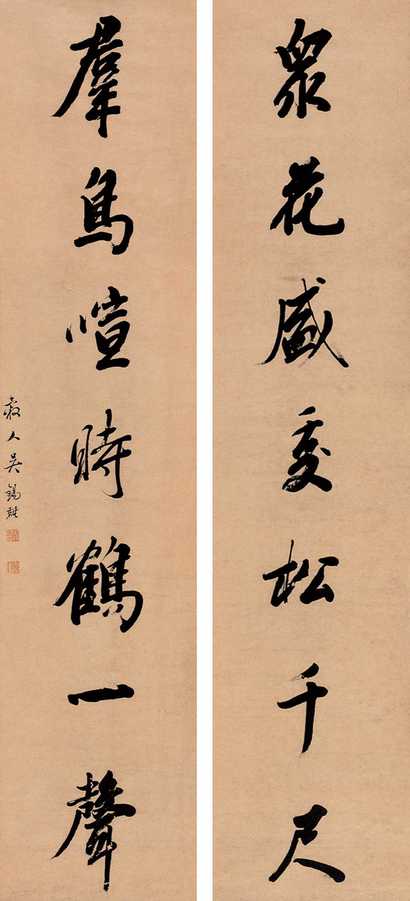 眾花盛處松千尺
羣鳥喧時鶴一聲
榖人吳錫麒